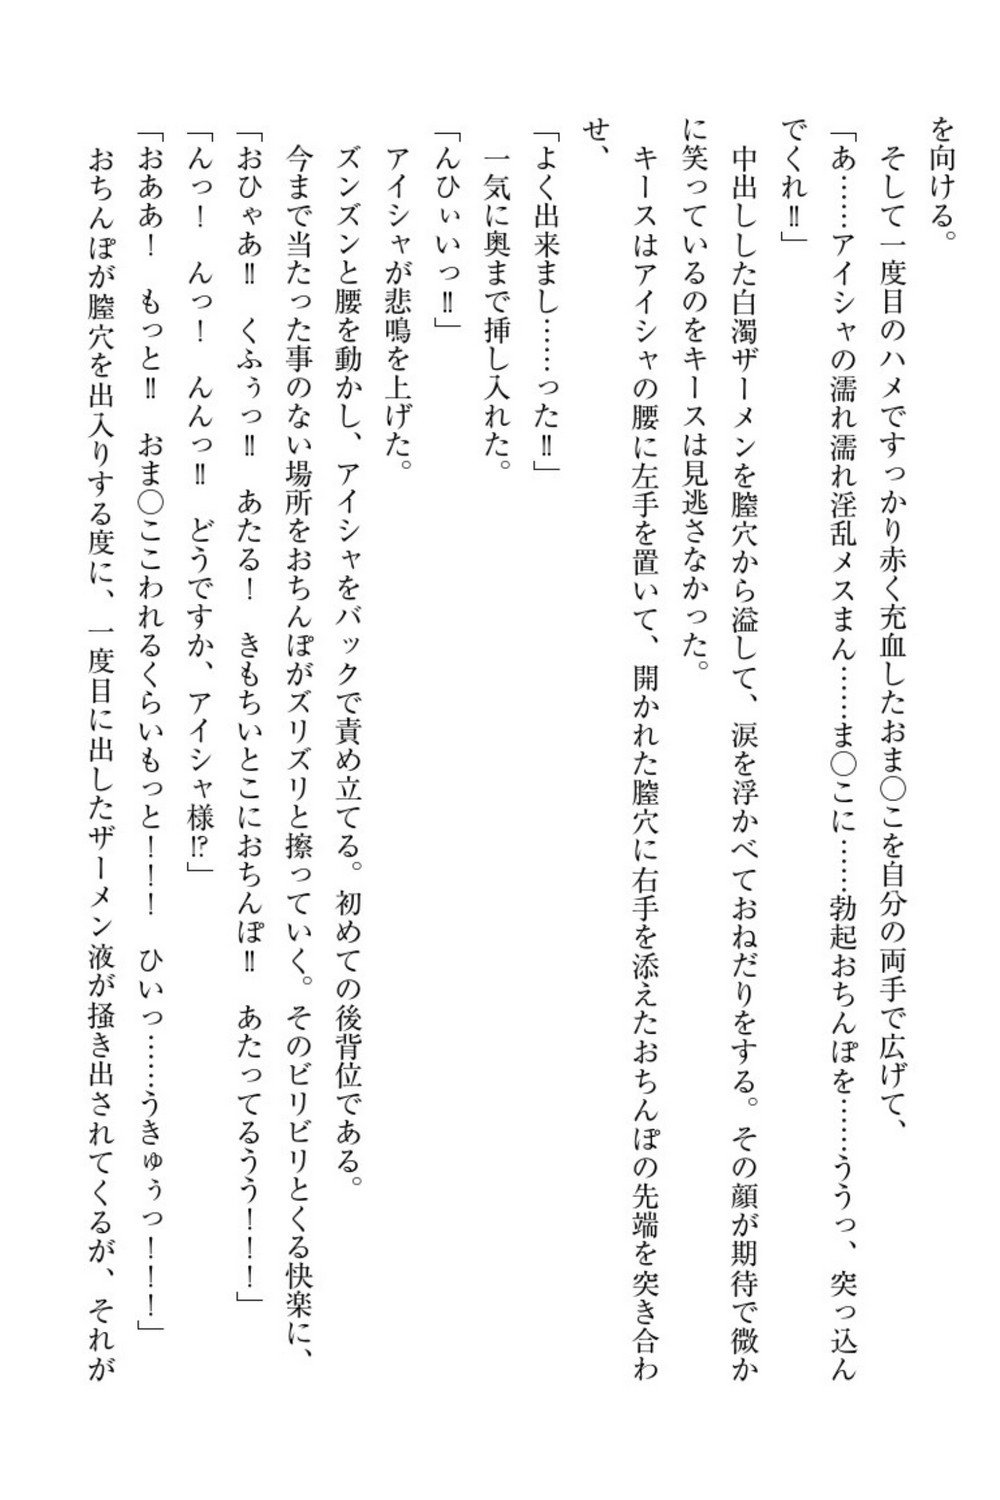 を向ける。
　そして一度目のハメですっかり赤く充血したおま〇こを自分の両手で広げて、
「あ……アイシャの濡れ濡れ淫乱メスまん……ま〇こに……勃起おちんぽを……ううっ、突っ込ん
でくれ‼」
　中出しした白濁ザーメンを膣穴から溢して、涙を浮かべておねだりをする。その顔が期待で微か
に笑っているのをキースは見逃さなかった。
　キースはアイシャの腰に左手を置いて、開かれた膣穴に右手を添えたおちんぽの先端を突き合わ
せ、
「よく出来まし……った‼」
　一気に奥まで挿し入れた。
「んひぃいっ‼」
　アイシャが悲鳴を上げた。
　ズンズンと腰を動かし、アイシャをバックで責め立てる。初めての後背位である。
　今まで当たった事のない場所をおちんぽがズリズリと擦っていく。そのビリビリとくる快楽に、
「おひゃあ‼　くふぅっ‼　あたる！　きもちいとこにおちんぽ‼　あたってるうう！！！」
「んっ！　んっ！　んんっ‼　どうですか、アイシャ様⁉」
「おああ！　もっと‼　おま〇ここわれるくらいもっと！！！　ひいっ……うきゅぅっ！！！」
　おちんぽが膣穴を出入りする度に、一度目に出したザーメン液が掻き出されてくるが、それが